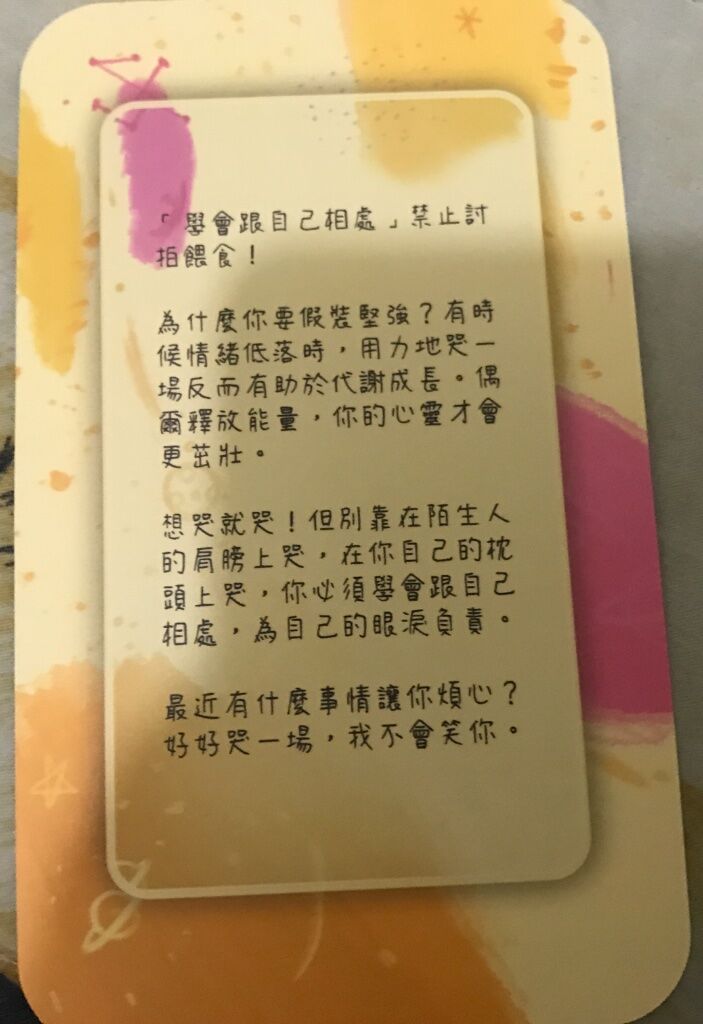 「學會跟自己相處」禁止討
拍餵食！
為什麼你要假裝堅強？有時
候情緒低落時，用力地哭一
場反而有助於代謝成長。偶
爾釋放能量，你的心靈才會
更茁壯。
想哭就哭！但別靠在陌生人
的肩膀上哭，在你自己的枕
頭上哭，你必須學會跟自己
相處，為自己的眼淚負責。
最近有什麼事情讓你煩心？
好好哭一場，我不會笑你。